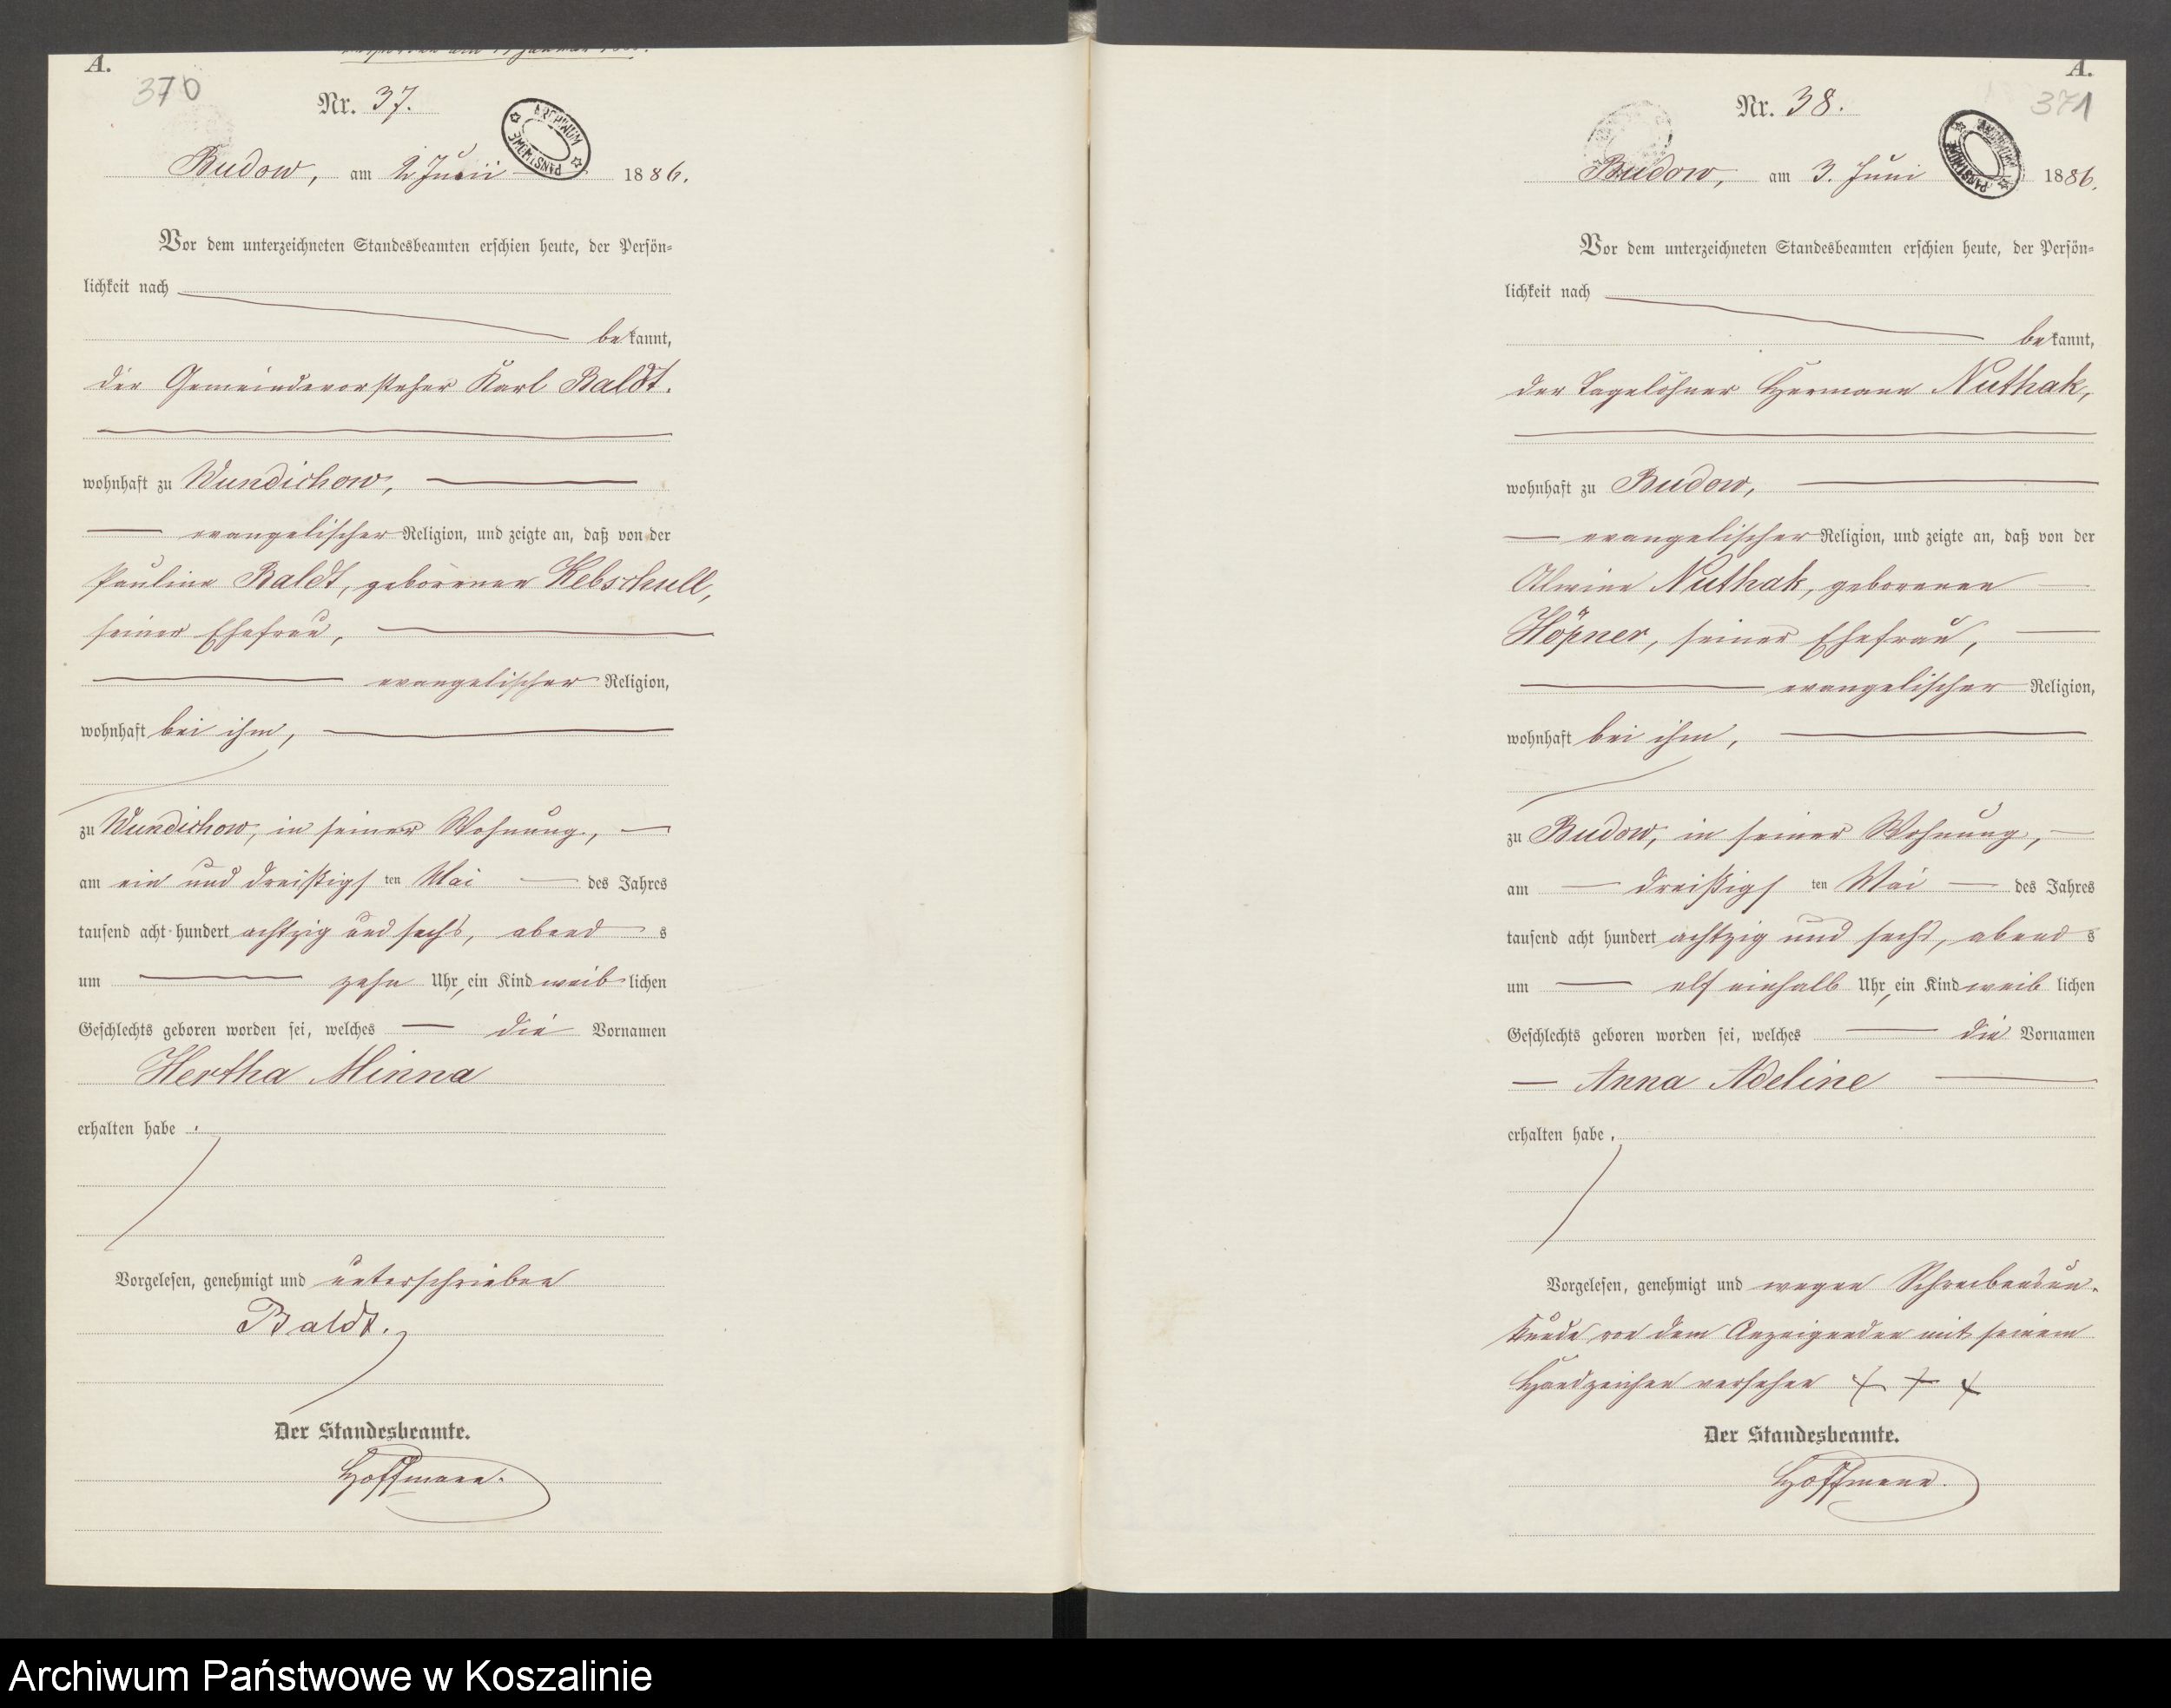 A.
370
Nr. 37.
ARCHIWUM PAŃSTWOWE
Budow, am 2 Juni 1886.
Vor dem unterzeichneten Standesbeamten erschien heute, der Persön-
lichkeit nach
bekannt,
der Gemeindevorsteher Karl Baldt.
wohnhaft zu Wundichow,
evangelischer Religion, und zeigte an, daß von der
Pauline Baldt, geborenen Kebschull,
seiner Ehefrau,
evangelischer Religion,
wohnhaft bei ihm,
zu Wundichow, in seiner Wohnung,
am ein und dreißigsten Mai des Jahres
tausend acht hundert achtzig und sechs, abends
um zehn Uhr, ein Kind weiblichen
Geschlechts geboren worden sei, welches die Vornamen
Hertha Minna
erhalten habe.
Vorgelesen, genehmigt und unterschrieben
Baldt.
Der Standesbeamte.
Hoffmann.
A.
371
Nr. 38.
ARCHIWUM PAŃSTWOWE
Budow, am 3. Juni 1886.
Vor dem unterzeichneten Standesbeamten erschien heute, der Persön-
lichkeit nach
bekannt,
der Tagelöhner Hermann Nuthak,
wohnhaft zu Budow,
evangelischer Religion, und zeigte an, daß von der
Alwine Nuthak, geborenen
Höpner, seiner Ehefrau,
evangelischer Religion,
wohnhaft bei ihm,
zu Budow, in seiner Wohnung,
am dreißigsten Mai des Jahres
tausend acht hundert achtzig und sechs, abends
um elf einhalb Uhr, ein Kind weiblichen
Geschlechts geboren worden sei, welches die Vornamen
Anna Adeline
erhalten habe.
Vorgelesen, genehmigt und wegen Schreibensun-
kunde von dem Anzeigenden mit seinem
Handzeichen versehen + + +
Der Standesbeamte.
Hoffmann.
Archiwum Państwowe w Koszalinie